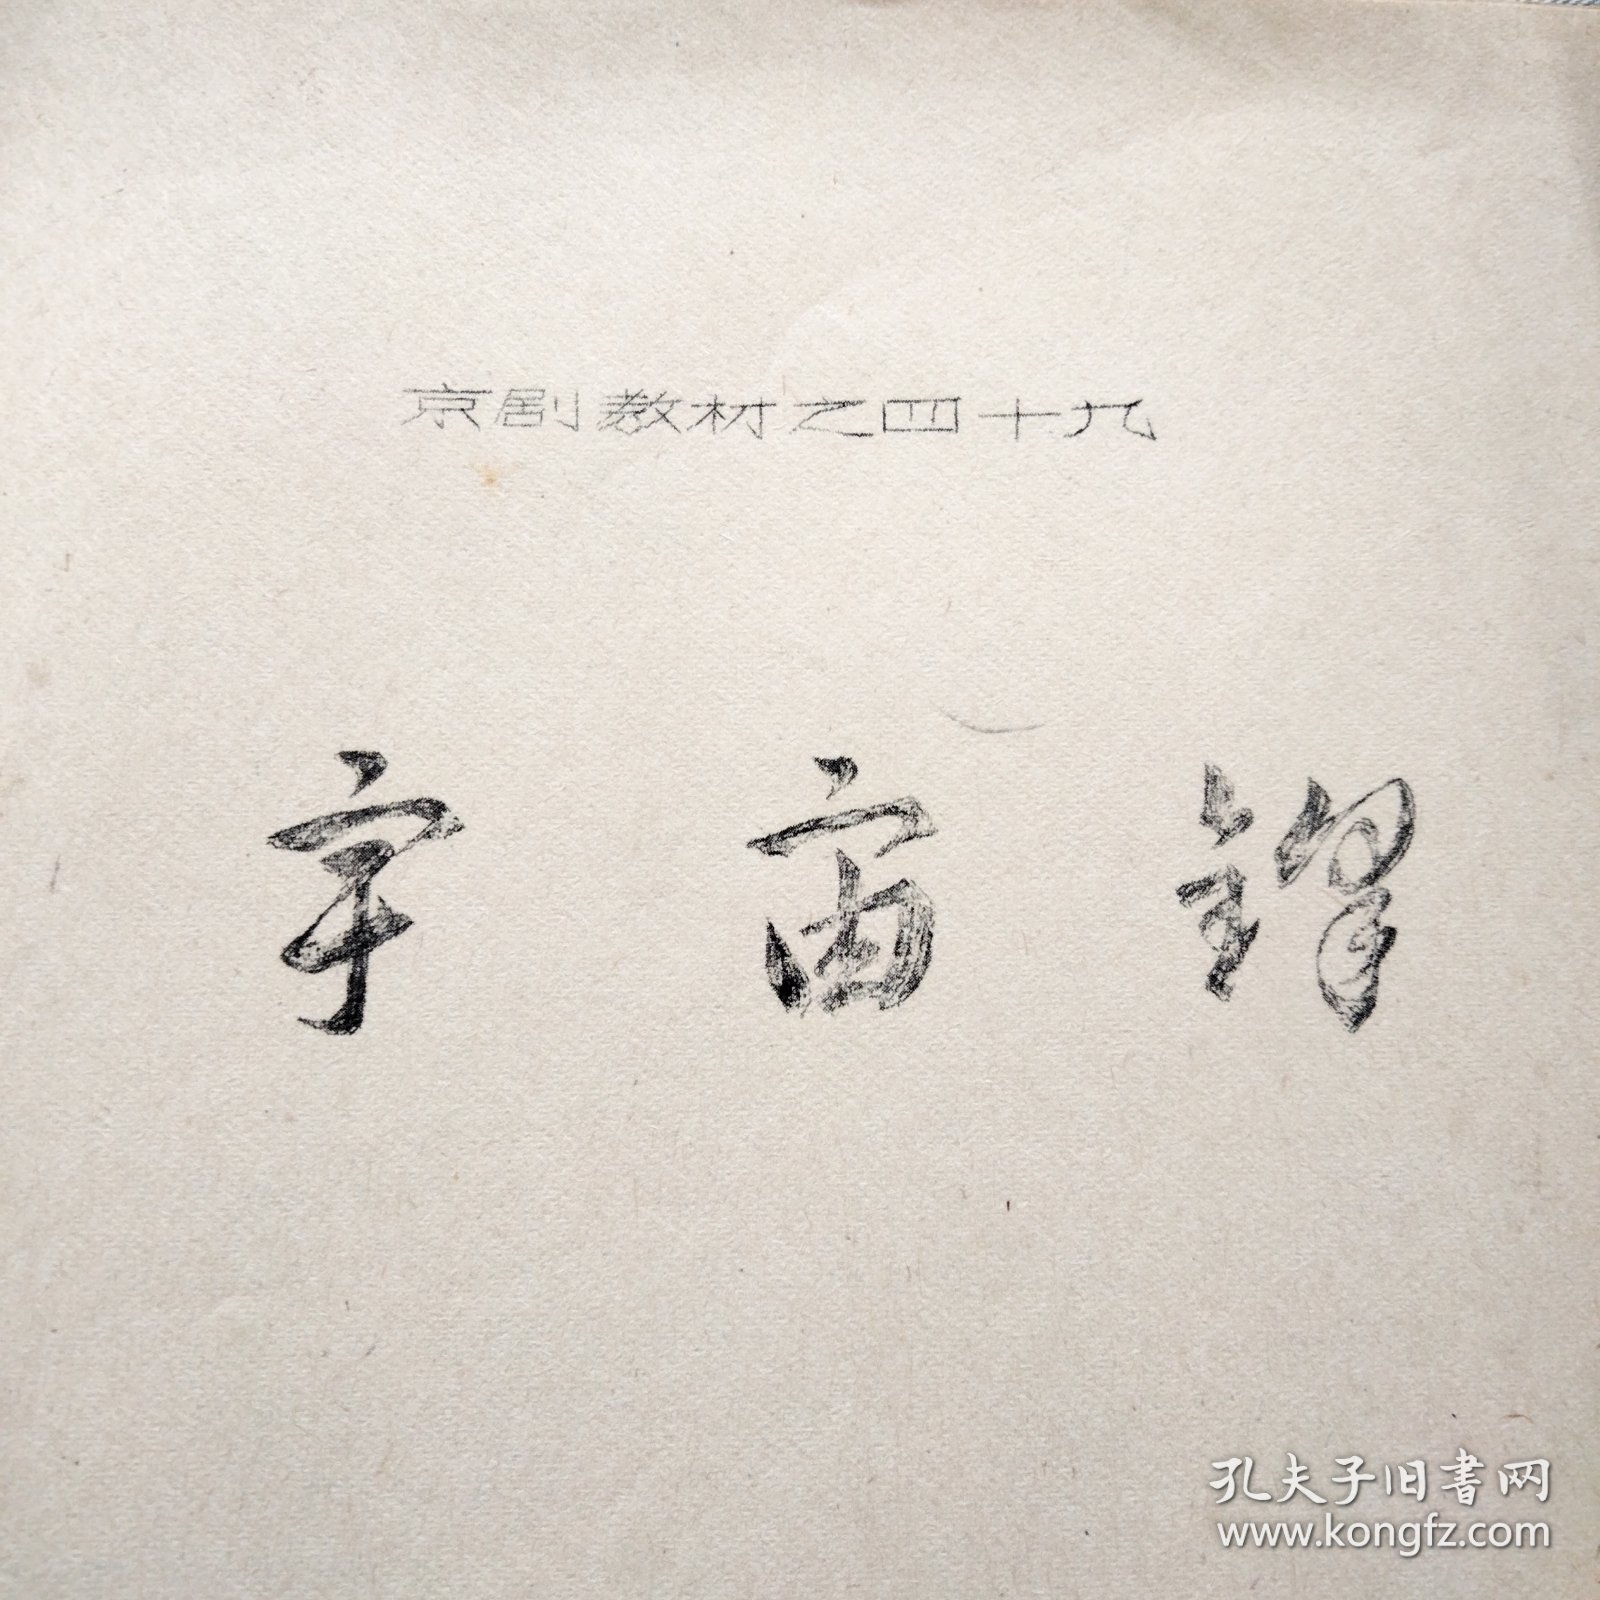 京剧教材之四十九
宇宙锋
孔夫子旧书网
www.kongfz.com